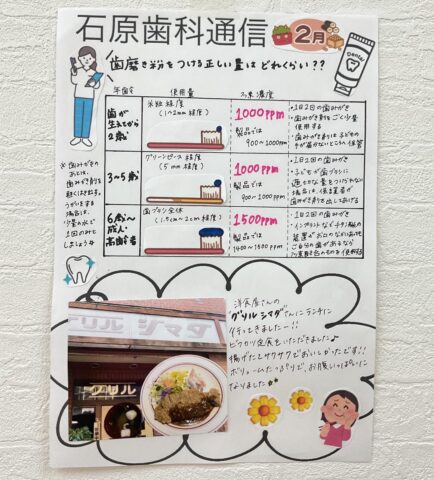 石原歯科通信 2月
歯磨き粉をつける正しい量はどれくらい??
Dental
年齢 使用量 フッ素濃度
歯が
生えてから
2歳
米粒程度
(1〜2mm程度)
1000ppm
製品では
900〜1000ppm
・1日2回の歯みがき
・歯みがき剤をごく少量
使用する
・歯みがき剤は子どもの
手が届かないところに保管
3〜5歳
グリーンピース程度
(5mm程度)
1000ppm
製品では
900〜1000ppm
・1日2回の歯みがき
・子どもが歯ブラシに
適切な量をつけられない
場合は、保護者が
歯みがき剤を出してあげる
6歳〜
成人・
高齢者
歯ブラシ全体
(1.5cm〜2cm程度)
1500ppm
製品では
1400〜1500ppm
・1日2回の歯みがき
・インプラントなどチタン製の
装置がお口のなかにあっても
ご自分の歯があるなら
フッ素配合のものを使用する
*歯みがきの
あとは、
歯みがき剤を
軽くはき出す。
うがいをする
場合は、
少量の水で
1回のみに
しましょう
洋食屋さんの
"グリル シマダ"さんにランチに
行ってきましたー!!
ビフカツ定食をいただきました♪
揚げたてサクサクでおいしかったです!!
ボリュームたっぷりで、お腹いっぱいに
なりました
グリル シマダ
グリル